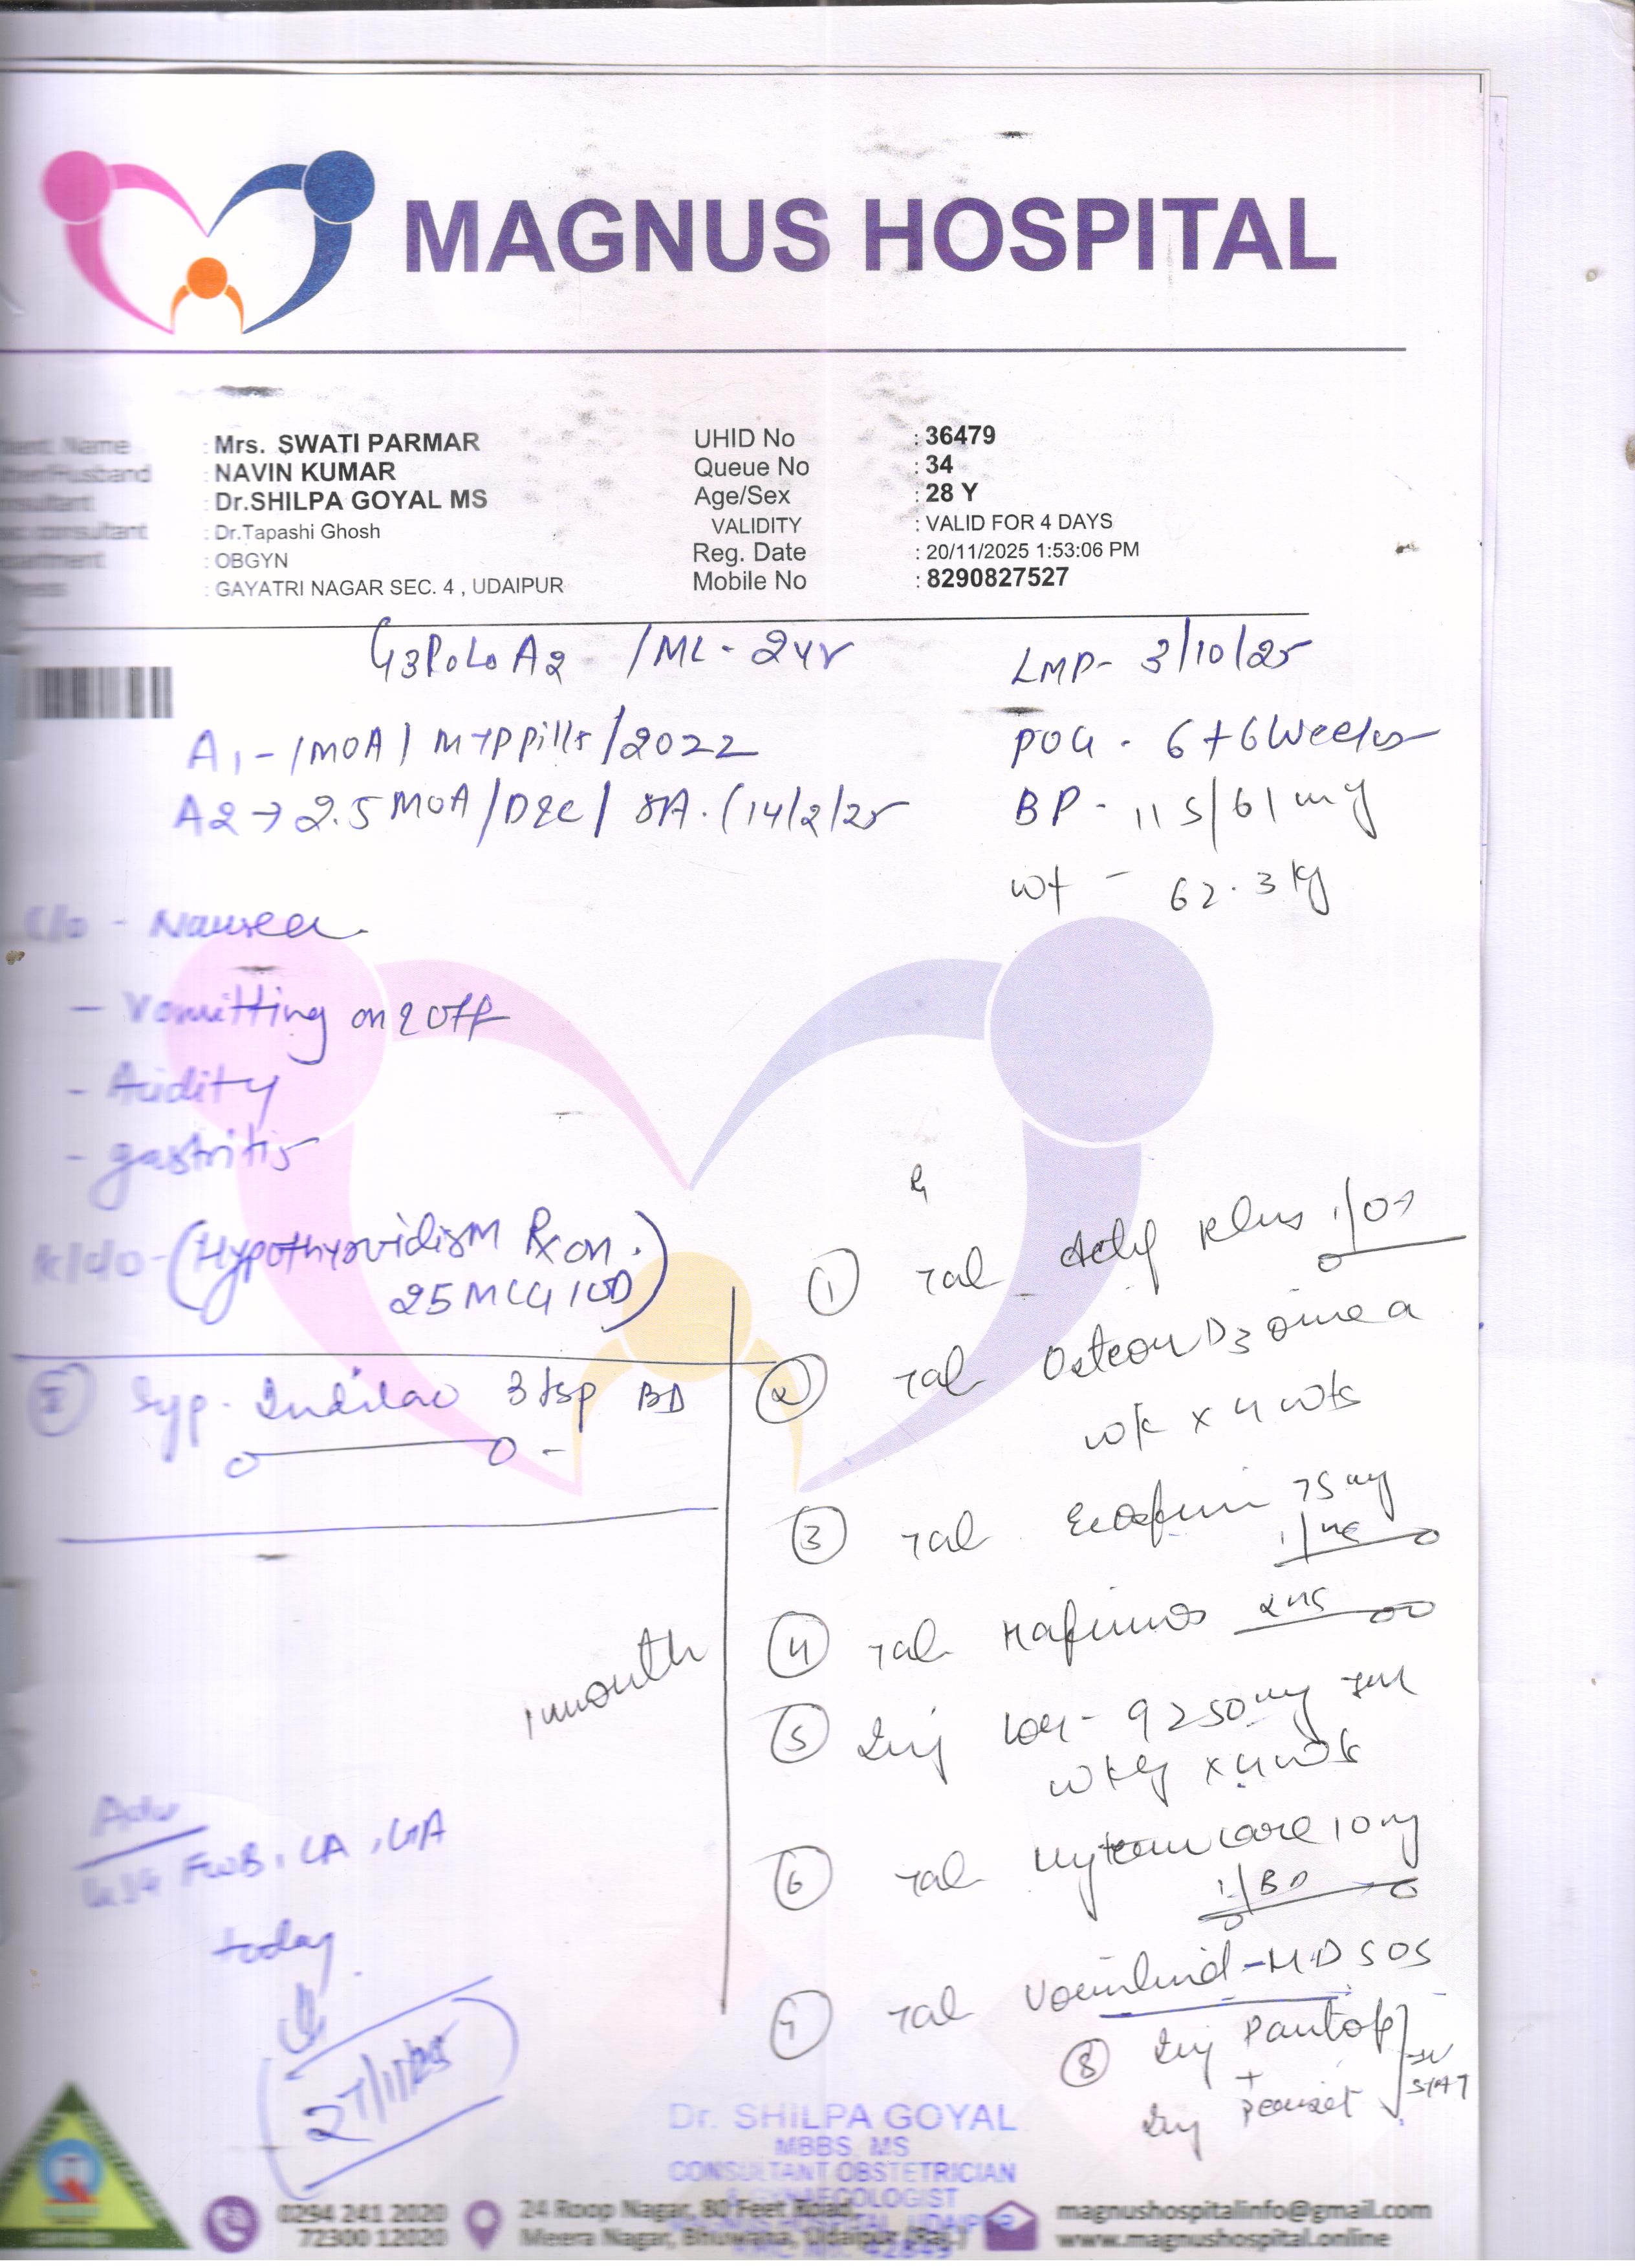 MAGNUS HOSPITAL
Name : Mrs. SWATI PARMAR
Husband : NAVIN KUMAR
: Dr.SHILPA GOYAL MS
consultant : Dr.Tapashi Ghosh
: OBGYN
: GAYATRI NAGAR SEC. 4 , UDAIPUR
UHID No : 36479
Queue No : 34
Age/Sex : 28 Y
VALIDITY : VALID FOR 4 DAYS
Reg. Date : 20/11/2025 1:53:06 PM
Mobile No : 8290827527
G3P0L0A2 /ML - 2yr
LMP- 3/10/25
A1 - 1MOA / MTP pills / 2022
POG - 6+6 Weeks
A2 → 2.5 MOA / D&C / SA. (14/2/25
BP - 115/61 mg
Wt - 62.3 kg
C/o - Nausea
- Vomitting on & off
- Acidity
- gastritis
K/c/o - (Hypothyroidism Rx on.
25 MCG 1OD)
Rx
① Tab 1/OD
② Tab D3 once a
wk x 4 wks
③ Tab Ecosprin 75 mg
1/HS
④ Tab 2HS
⑤ Inj 250 mg IM
wkly x 4 wk
⑥ Tab care 10 mg
1/BD
⑦ Tab -MD SOS
⑧ Inj Pantop
+
Inj
IV
STAT
Syp. 3 tsp BD
1 month
Adv
FWB, CA, GA
today
27/11/25
Dr. SHILPA GOYAL
MBBS, MS
CONSULTANT OBSTETRICIAN
& GYNAECOLOGIST
MAGNUS HOSPITAL, UDAIPUR
0294 241 2020
72300 12020
24 Roop Nagar, 80 Feet Road,
Meera Nagar, Bhuwana, Udaipur (Raj.)
magnushospitalinfo@gmail.com
www.magnushospital.online